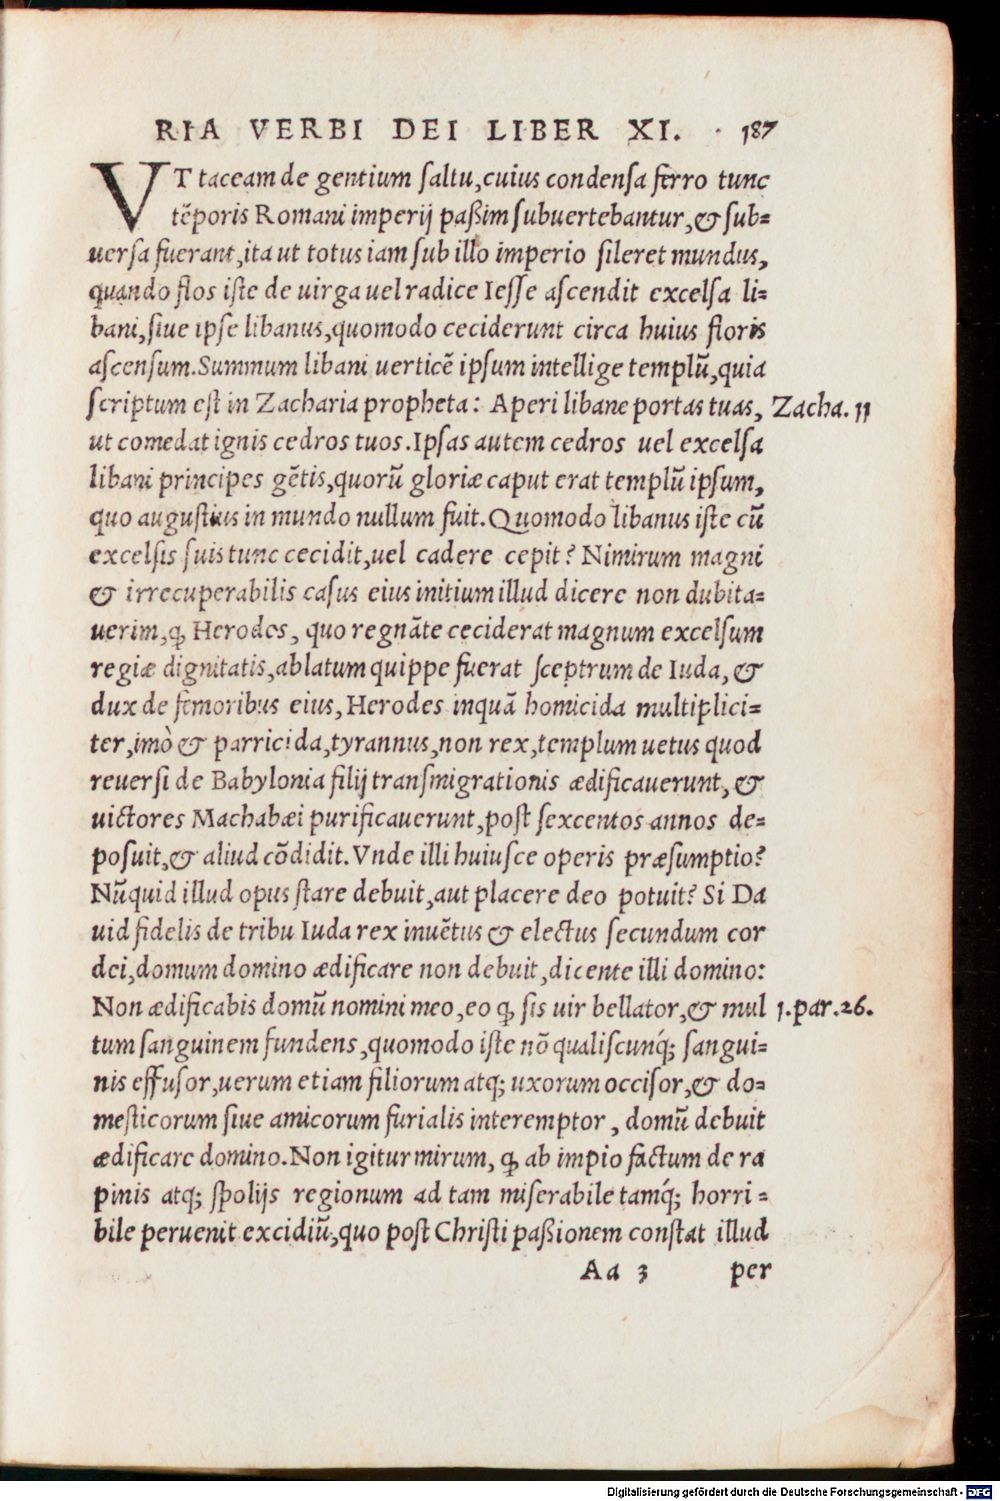 RIA VERBI DEI LIBER XI. 187
VT taceam de gentium ſaltu, cuius condenſa ferro tunc
tēporis Romani imperij paßim ſubuertebantur, & ſub=
uerſa fuerant, ita ut totus iam ſub illo imperio ſileret mundus,
quando flos iſte de uirga uel radice Ieſſe aſcendit excelſa li=
bani, ſiue ipſe libanus, quomodo ceciderunt circa huius floris
aſcenſum. Summum libani uerticē ipſum intellige templū, quia
ſcriptum eſt in Zacharia propheta: Aperi libane portas tuas, Zacha. 11
ut comedat ignis cedros tuos. Ipſas autem cedros uel excelſa
libani principes gētis, quorū gloriæ caput erat templū ipſum,
quo auguſtius in mundo nullum fuit. Quomodo libanus iſte cū
excelſis ſuis tunc cecidit, uel cadere cepit? Nimirum magni
& irrecuperabilis caſus eius initium illud dicere non dubita=
uerim, ꝙ Herodes, quo regnāte ceciderat magnum excelſum
regiæ dignitatis, ablatum quippe fuerat ſceptrum de Iuda, &
dux de femoribus eius, Herodes inquā homicida multiplici=
ter, imò & parricida, tyrannus, non rex, templum uetus quod
reuerſi de Babylonia filij tranſmigrationis ædificauerunt, &
uictores Machabæi purificauerunt, poſt ſexcentos annos de=
poſuit, & aliud cōdidit. Vnde illi huiuſce operis præſumptio?
Nūquid illud opus ſtare debuit, aut placere deo potuit? Si Da
uid fidelis de tribu Iuda rex inuētus & electus ſecundum cor
dei, domum domino ædificare non debuit, dicente illi domino:
Non ædificabis domū nomini meo, eo ꝙ ſis uir bellator, & mul 1. par. 26.
tum ſanguinem fundens, quomodo iſte nō qualiſcunq́; ſangui=
nis effuſor, uerum etiam filiorum atq; uxorum occiſor, & do=
meſticorum ſiue amicorum furialis interemptor, domū debuit
ædificare domino. Non igitur mirum, ꝙ ab impio factum de ra
pinis atq; ſpolijs regionum ad tam miſerabile tamq́; horri=
bile peruenit excidiū, quo poſt Chriſti paßionem conſtat illud
Aa 3 per
Digitalisierung gefördert durch die Deutsche Forschungsgemeinschaft - DFG